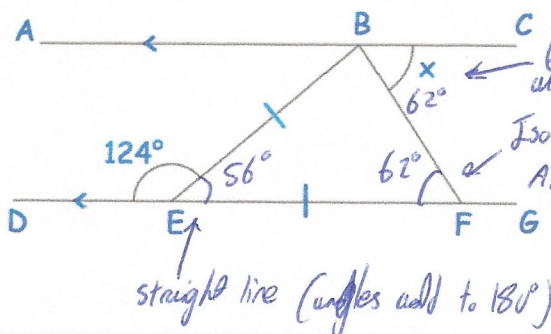 A B C
x
62°
124° 56° 62° Iso
D E F G
straight line (angles add to 180°)